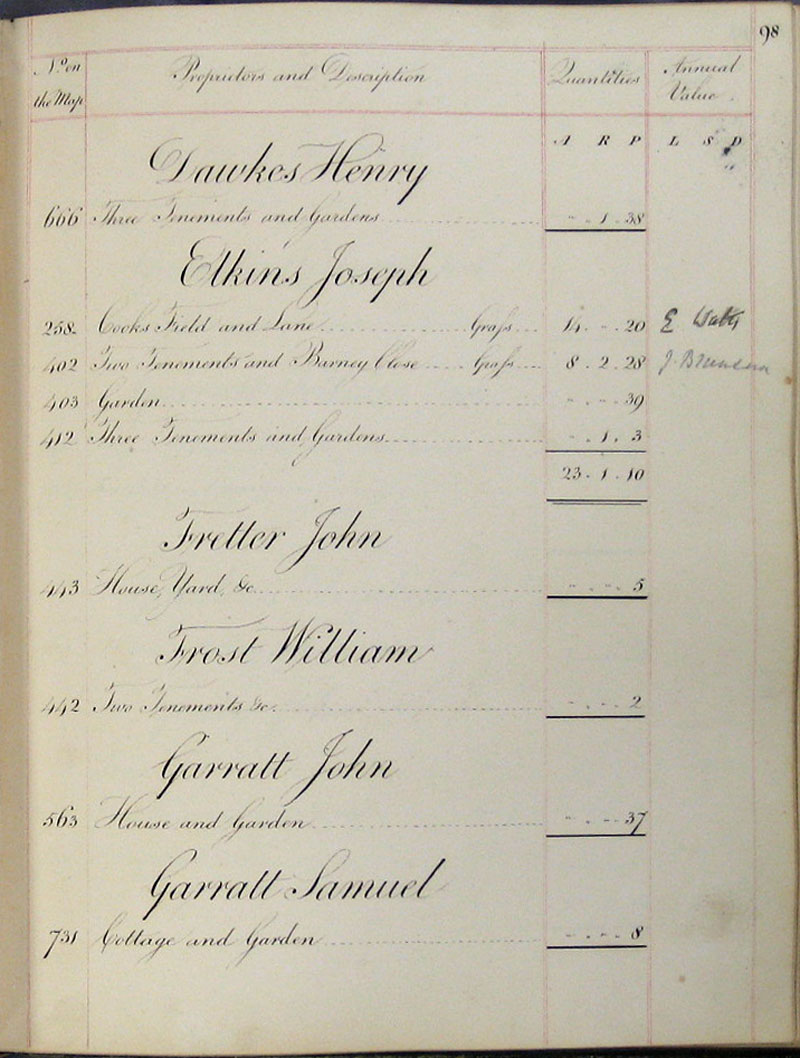 98
No. on the Map Proprietors and Description Quantities Annual Value
A R P L S D
Dawkes Henry
666 Three Tenements and Gardens " 1 38
Elkins Joseph
258 Cooks Field and Lane Grass 14 " 20 E
402 Two Tenements and Barney Close Grass 8 2 28 J.
403 Garden " " 39
412 Three Tenements and Gardens " 1 3
23 1 10
Fretter John
443 House, Yard, &c. " " 5
Frost William
442 Two Tenements &c. " " 2
Garratt John
563 House and Garden " " 37
Garratt Samuel
731 Cottage and Garden " " 8